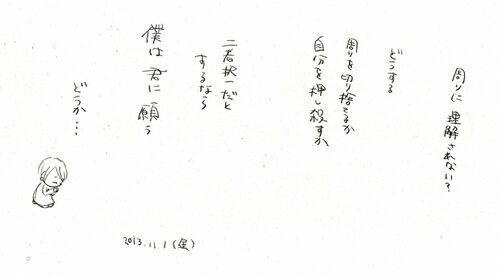 周りに 理解されない?
どうする
周りを切り捨てるか
自分を押し殺すか
二者択一だと
するなら
僕は 君に 願う
どうか…
2013.11.1(金)